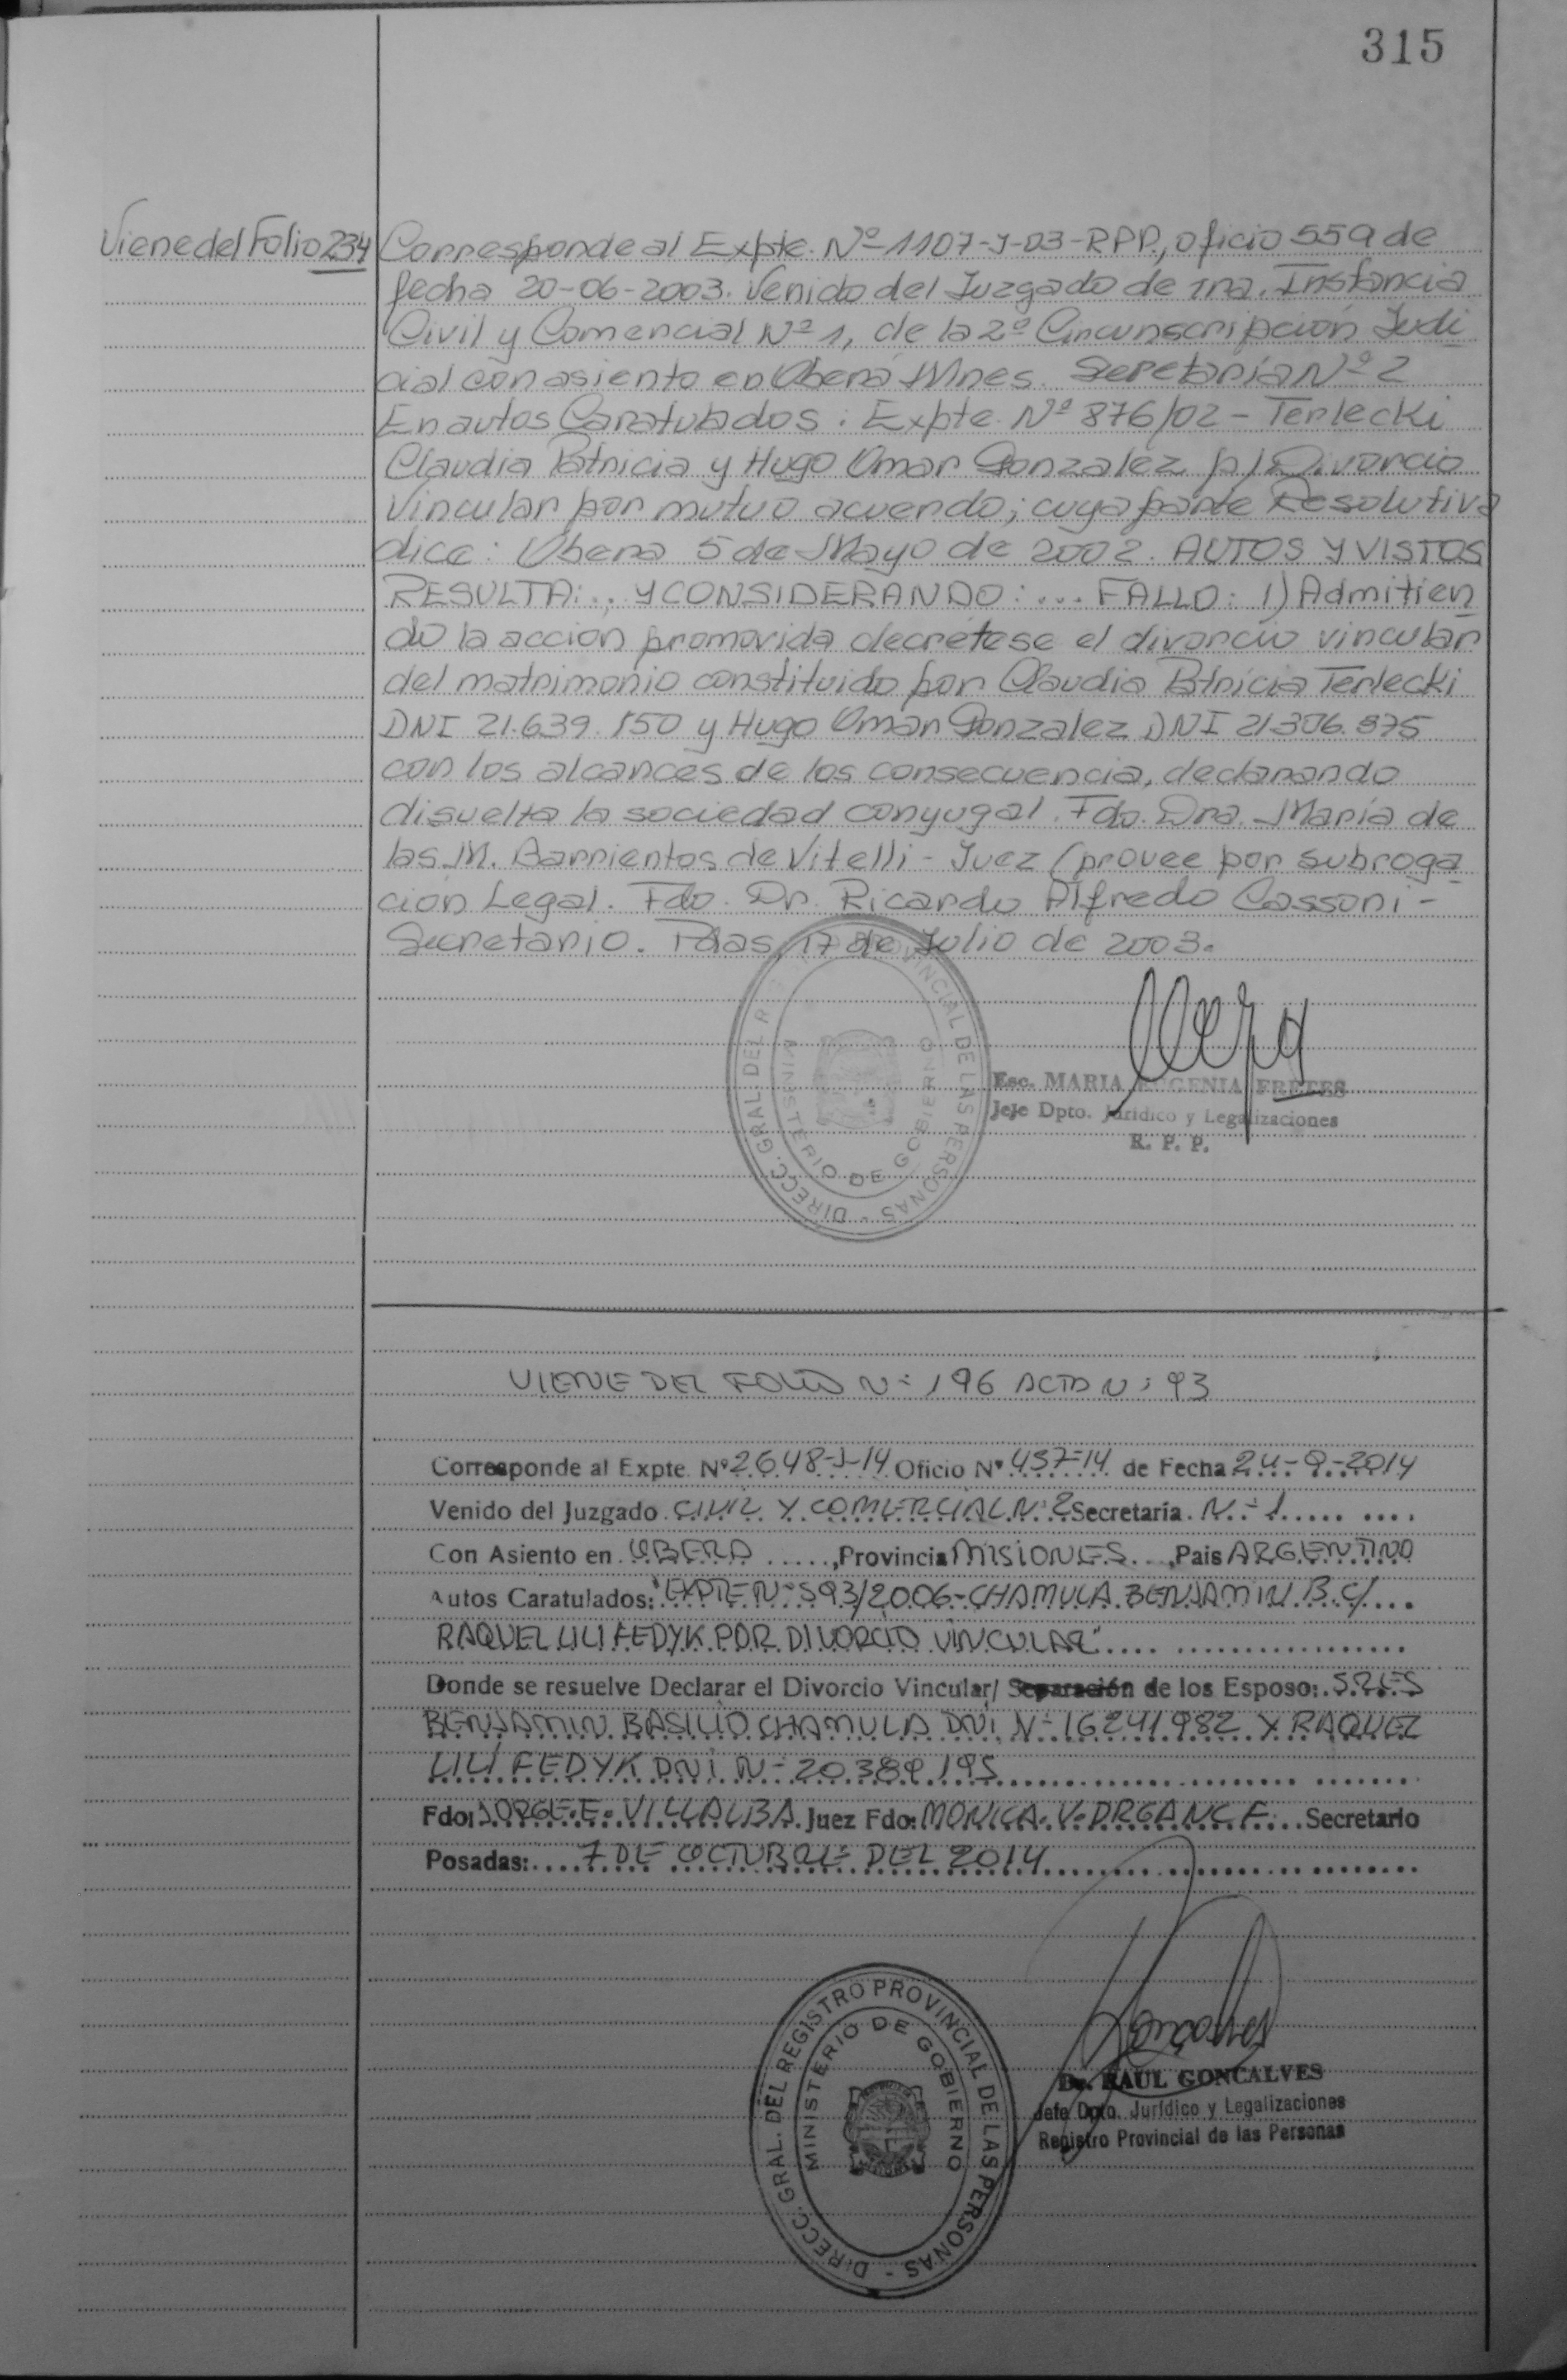 315
Viene del Folio 234
Corresponde al Expte. Nº 1107-J-03-RPP., oficio 559 de
fecha 20-06-2003. Venido del Juzgado de 1ra. Instancia
Civil y Comercial Nº 1, de la 2º Circunscripción Judi
cial con asiento en Oberá Mnes. Secretaría Nº 2
En autos Caratulados: Expte. Nº 876/02 - Terlecki
Claudia Patricia y Hugo Omar Gonzalez p/ Divorcio
Vincular por mutuo acuerdo; cuya parte Resolutiva
dice: Obera 5 de Mayo de 2002. AUTOS Y VISTOS
RESULTA:.. Y CONSIDERANDO:... FALLO: 1) Admitien
do la acción promovida decrétese el divorcio vincular
del matrimonio constituido por Claudia Patricia Terlecki
DNI 21.639.150 y Hugo Omar Gonzalez DNI 21.306.875
con los alcances de los consecuencia, declarando
disuelta la sociedad conyugal. Fdo. Dra. María de
las M. Barrientos de Vitelli - Juez (provee por subroga
ción Legal. Fdo. Dr. Ricardo Alfredo Cassoni -
Secretario. Pdas, 17 de Julio de 2003.
DIRECC. GRAL. DEL REGISTRO PROVINCIAL DE LAS PERSONAS
MINISTERIO DE GOBIERNO
Esc. MARIA EUGENIA FRETES
Jefe Dpto. Jurídico y Legalizaciones
R. P. P.
VIENE DEL FOLIO N: 196 ACTA N: 93
Corresponde al Expte. Nº 2648-J-14 Oficio Nº 457-14 de Fecha 24-9-2014
Venido del Juzgado CIVIL Y COMERCIAL N: 2 Secretaría N-1
Con Asiento en OBERA, Provincia MISIONES, Pais ARGENTINO
Autos Caratulados: "EXPTE N-593/2006-CHAMULA BENJAMIN B. C/
RAQUEL LILI FEDYK POR DIVORCIO VINCULAR"
Donde se resuelve Declarar el Divorcio Vincular/ Separación de los Esposo: SRES
BENJAMIN BASILIO CHAMULA DNI N-16241982 Y RAQUEL
LILI FEDYK DNI N-20389195
Fdo: JORGE E. VILLALBA Juez Fdo: MONICA V. DRGANC F. Secretario
Posadas: 7 DE OCTUBRE DEL 2014
DIRECC. GRAL. DEL REGISTRO PROVINCIAL DE LAS PERSONAS
MINISTERIO DE GOBIERNO
Dr. RAUL GONCALVES
Jefe Dpto. Jurídico y Legalizaciones
Registro Provincial de las Personas